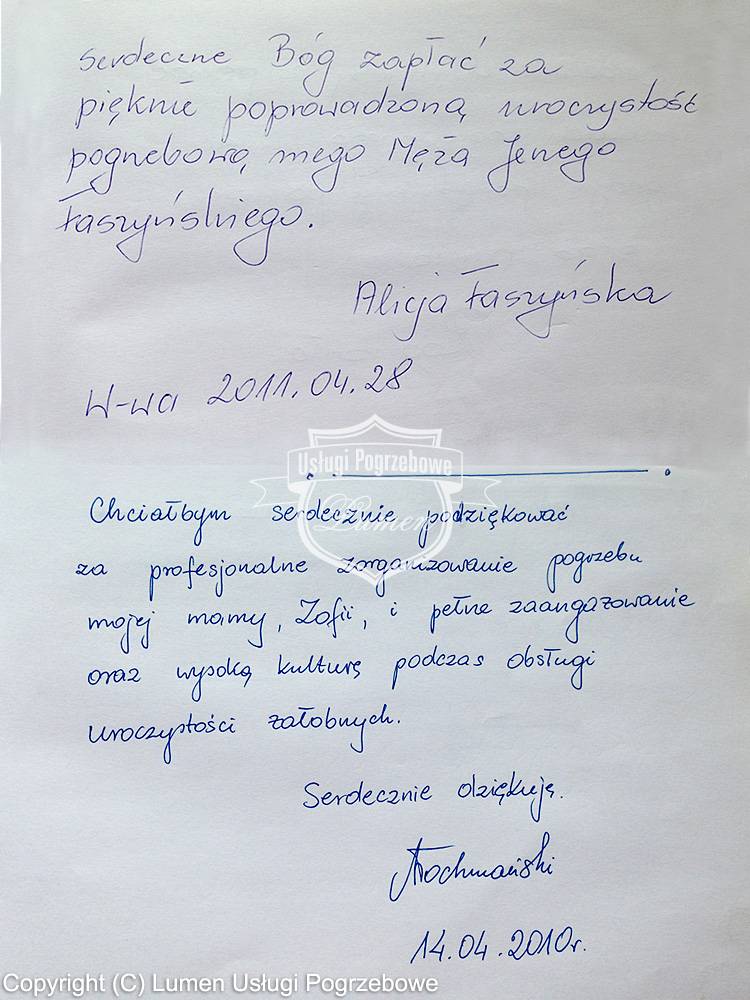 Serdeczne Bóg zapłać za
pięknie poprowadzoną uroczystość
pogrzebową mego Męża Jerzego
Łaszyńskiego.
Alicja Łaszyńska
W-wa 2011.04.28
Usługi Pogrzebowe
Lumen
Chciałbym serdecznie podziękować
za profesjonalne zorganizowanie pogrzebu
mojej mamy, Zofii, i pełne zaangażowanie
oraz wysoką kulturę podczas obsługi
uroczystości załobnych.
Serdecznie dziękuję.
14.04.2010r.
Copyright (C) Lumen Usługi Pogrzebowe